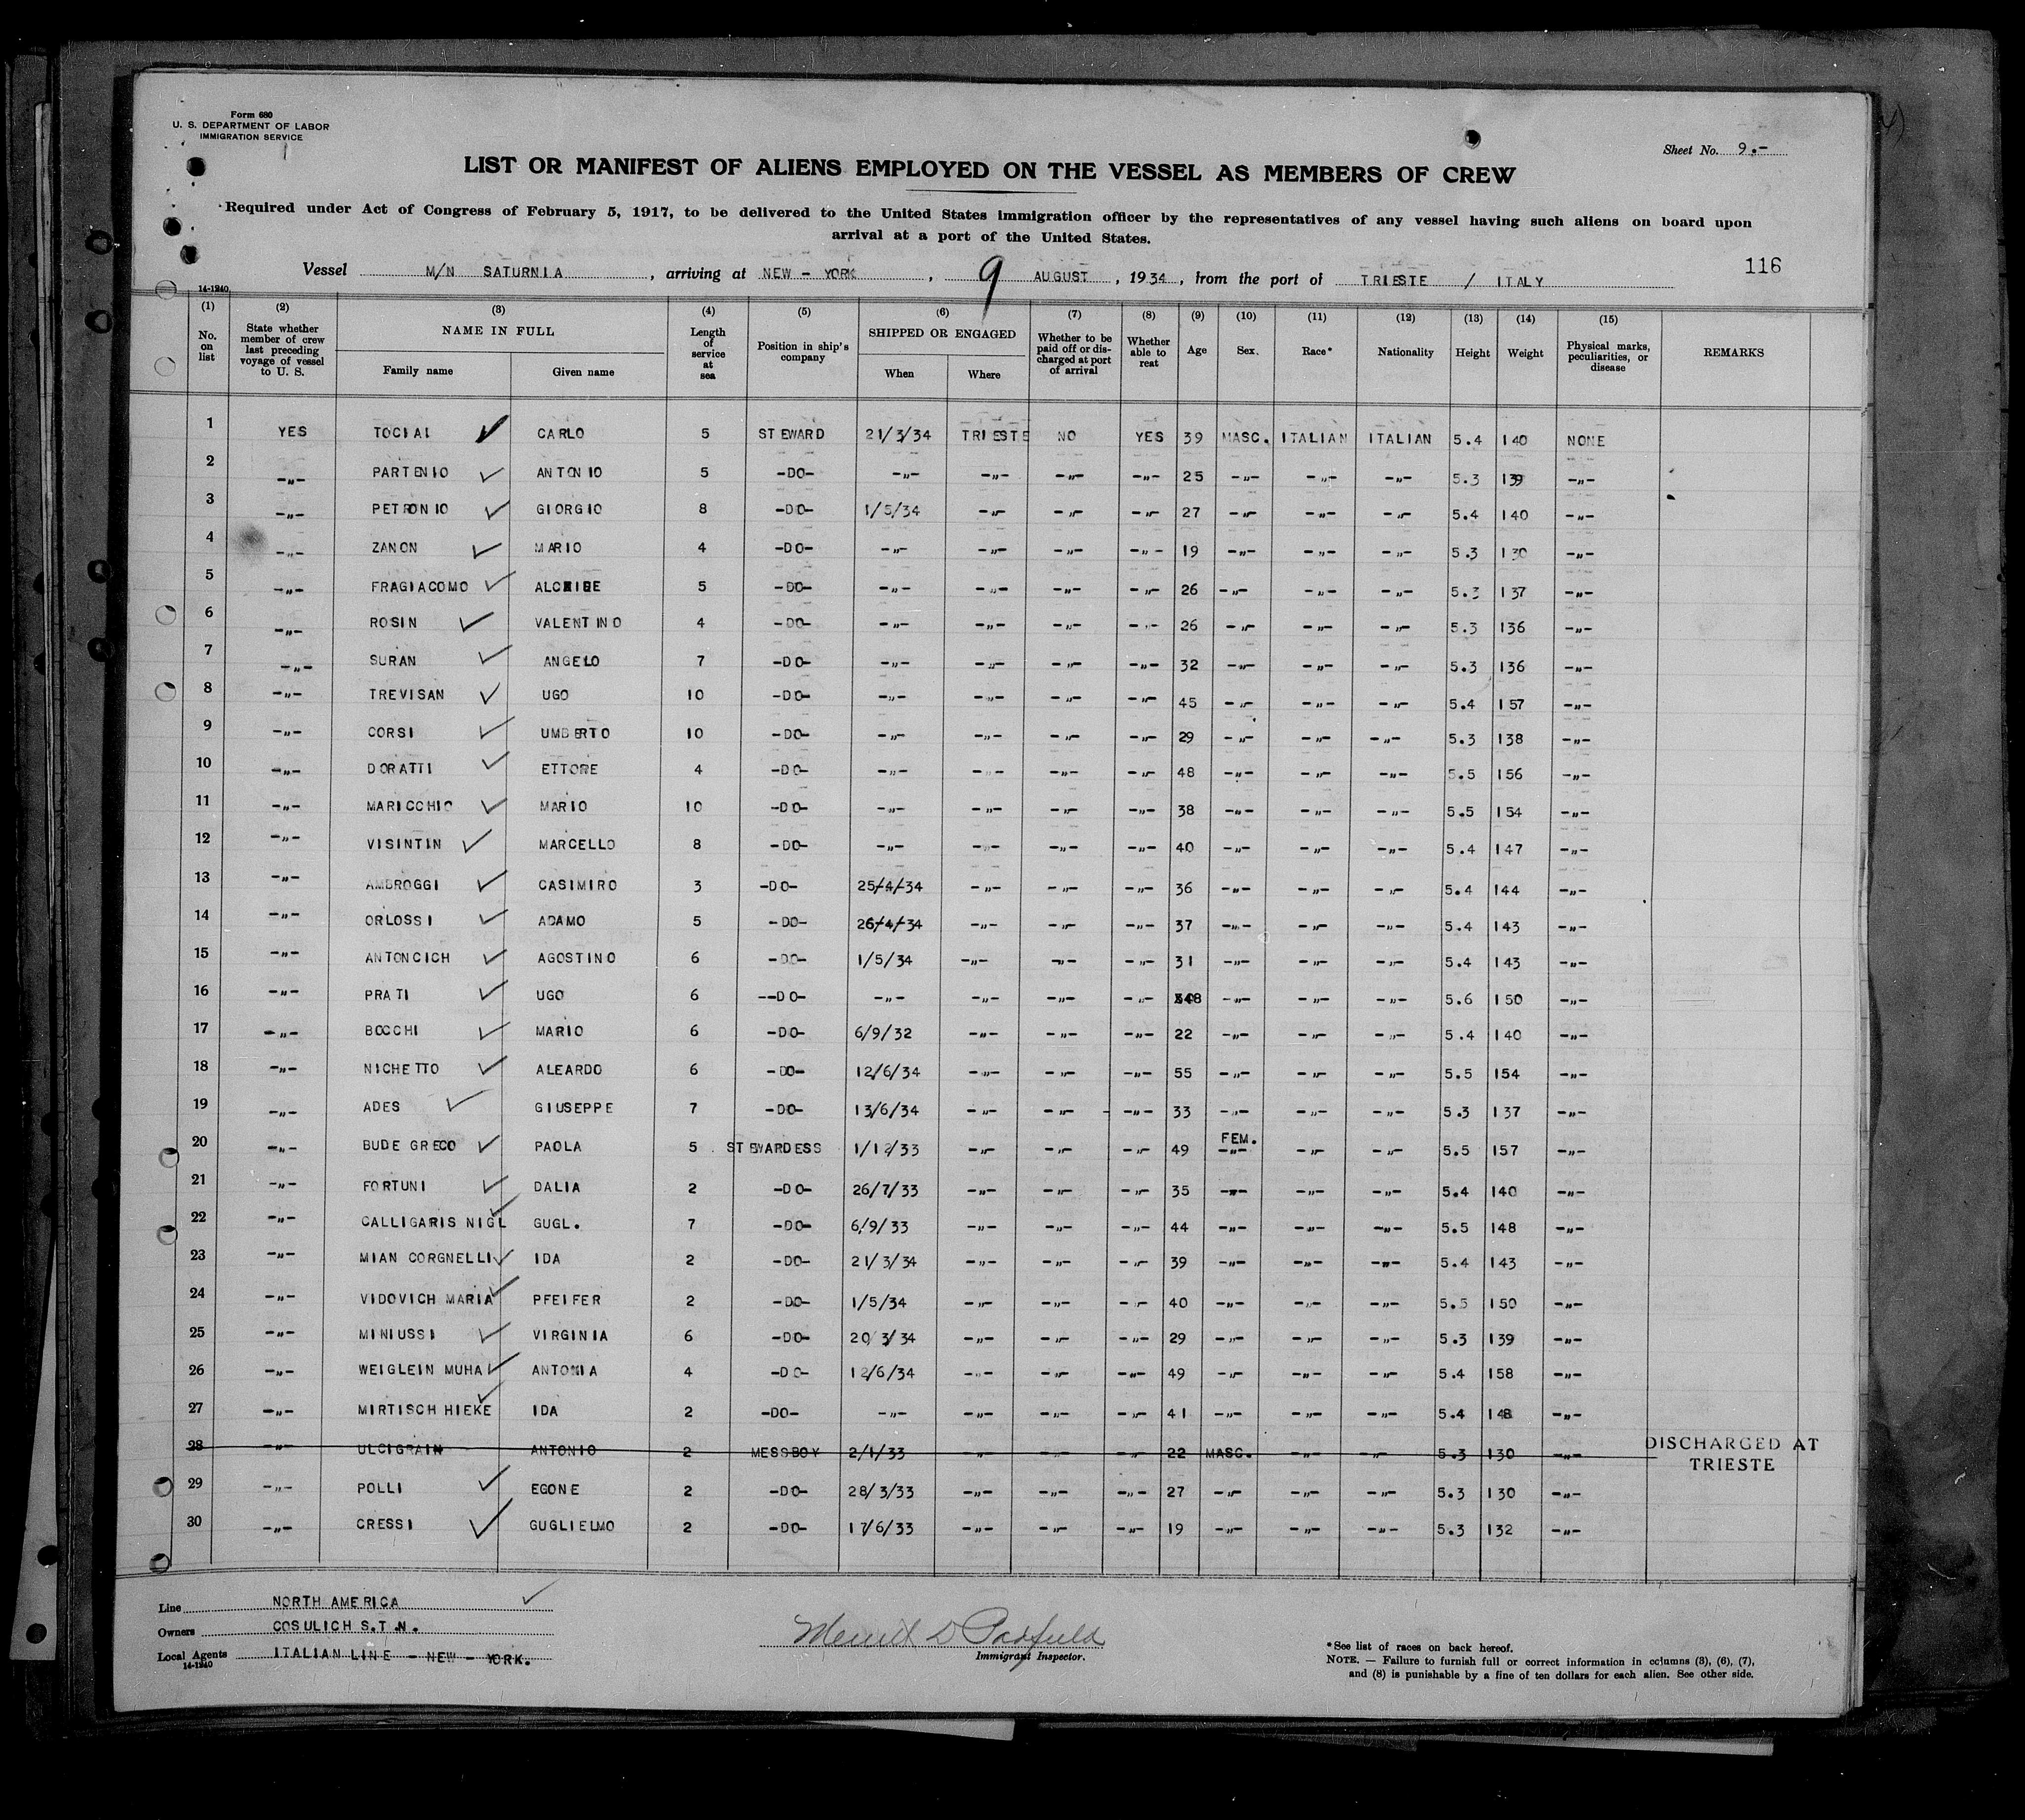 Form 680
U. S. DEPARTMENT OF LABOR
IMMIGRATION SERVICE
Sheet No. 9.-
LIST OR MANIFEST OF ALIENS EMPLOYED ON THE VESSEL AS MEMBERS OF CREW
Required under Act of Congress of February 5, 1917, to be delivered to the United States immigration officer by the representatives of any vessel having such aliens on board upon
arrival at a port of the United States.
Vessel M/N SATURNIA, arriving at NEW - YORK, 9 AUGUST, 1934, from the port of TRIESTE / ITALY
116
14-1240
(1) (2) (3) (4) (5) (6) (7) (8) (9) (10) (11) (12) (13) (14) (15)
No. on list | State whether member of crew last preceding voyage of vessel to U. S. | NAME IN FULL | Length of service at sea | Position in ship's company | SHIPPED OR ENGAGED | Whether to be paid off or discharged at port of arrival | Whether able to read | Age | Sex. | Race* | Nationality | Height | Weight | Physical marks, peculiarities, or disease | REMARKS
Family name | Given name | When | Where
1 YES TOCIAI CARLO 5 STEWARD 21/3/34 TRIESTE NO YES 39 MASC. ITALIAN ITALIAN 5.4 140 NONE
2 -"- PARTENIO ANTONIO 5 -DO- -"- -"- -"- -"- 25 -"- -"- -"- 5.3 139 -"-
3 -"- PETRONIO GIORGIO 8 -DO- 1/5/34 -"- -"- -"- 27 -"- -"- -"- 5.4 140 -"-
4 -"- ZANON MARIO 4 -DO- -"- -"- -"- -"- 19 -"- -"- -"- 5.3 130 -"-
5 -"- FRAGIACOMO 5 -DO- -"- -"- -"- -"- 26 -"- -"- -"- 5.3 137 -"-
6 -"- ROSIN VALENTINO 4 -DO- -"- -"- -"- -"- 26 -"- -"- -"- 5.3 136 -"-
7 -"- SURAN ANGELO 7 -DO- -"- -"- -"- -"- 32 -"- -"- -"- 5.3 136 -"-
8 -"- TREVISAN UGO 10 -DO- -"- -"- -"- -"- 45 -"- -"- -"- 5.4 157 -"-
9 -"- CORSI UMBERTO 10 -DO- -"- -"- -"- -"- 29 -"- -"- -"- 5.3 138 -"-
10 -"- DORATTI ETTORE 4 -DO- -"- -"- -"- -"- 48 -"- -"- -"- 5.5 156 -"-
11 -"- MARICCHIO MARIO 10 -DO- -"- -"- -"- -"- 38 -"- -"- -"- 5.5 154 -"-
12 -"- VISINTIN MARCELLO 8 -DO- -"- -"- -"- -"- 40 -"- -"- -"- 5.4 147 -"-
13 -"- AMBROGGI CASIMIRO 3 -DO- 25/4/34 -"- -"- -"- 36 -"- -"- -"- 5.4 144 -"-
14 -"- ORLOSSI ADAMO 5 -DO- 26/4/34 -"- -"- -"- 37 -"- -"- -"- 5.4 143 -"-
15 -"- ANTONCICH AGOSTINO 6 -DO- 1/5/34 -"- -"- -"- 31 -"- -"- -"- 5.4 143 -"-
16 -"- PRATI UGO 6 --DO- -"- -"- -"- -"- -"- -"- -"- 5.6 150 -"-
17 -"- BOCCHI MARIO 6 -DO- 6/9/32 -"- -"- -"- 22 -"- -"- -"- 5.4 140 -"-
18 -"- NICHETTO ALEARDO 6 -DO- 12/6/34 -"- -"- -"- 55 -"- -"- -"- 5.5 154 -"-
19 -"- ADES GIUSEPPE 7 -DO- 13/6/34 -"- -"- -"- 33 -"- -"- -"- 5.3 137 -"-
20 -"- BUDE GRECO PAOLA 5 STEWARDESS 1/12/33 -"- -"- -"- 49 FEM. -"- -"- -"- 5.5 157 -"-
21 -"- FORTUNI DALIA 2 -DO- 26/7/33 -"- -"- -"- 35 -"- -"- -"- 5.4 140 -"-
22 -"- CALLIGARIS NIGL GUGL. 7 -DO- 6/9/33 -"- -"- -"- 44 -"- -"- -"- 5.5 148 -"-
23 -"- MIAN CORGNELLI IDA 2 -DO- 21/3/34 -"- -"- -"- 39 -"- -"- -"- 5.4 143 -"-
24 -"- VIDOVICH MARIA PFEIFER 2 -DO- 1/5/34 -"- -"- -"- 40 -"- -"- -"- 5.5 150 -"-
25 -"- MINIUSSI VIRGINIA 6 -DO- 20 3/34 -"- -"- -"- 29 -"- -"- -"- 5.3 139 -"-
26 -"- WEIGLEIN MUHA ANTONIA 4 -DO- 12/6/34 -"- -"- -"- 49 -"- -"- -"- 5.4 158 -"-
27 -"- MIRTISCH HIEKE IDA 2 -DO- -"- -"- -"- -"- 41 -"- -"- -"- 5.4 148 -"-
28 -"- ULCIGRAIN ANTONIO 2 MESSBOY 2/1/33 -"- -"- -"- 22 MASC. -"- -"- 5.3 130 -"- DISCHARGED AT TRIESTE
29 -"- POLLI EGONE 2 -DO- 28/3/33 -"- -"- -"- 27 -"- -"- -"- 5.3 130 -"-
30 -"- CRESSI GUGLIELMO 2 -DO- 17/6/33 -"- -"- -"- 19 -"- -"- -"- 5.3 132 -"-
Line NORTH AMERICA
Owners COSULICH S.T.N.
Local Agents ITALIAN LINE - NEW - YORK.
14-1240
Merrit D Padfield
Immigrant Inspector.
*See list of races on back hereof.
NOTE. — Failure to furnish full or correct information in columns (3), (6), (7),
and (8) is punishable by a fine of ten dollars for each alien. See other side.